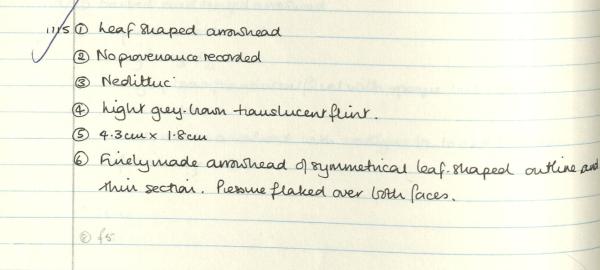 1115 ① Leaf shaped arrowhead
② No provenance recorded
③ Neolithic
④ Light grey-brown translucent flint.
⑤ 4.3cm x 1.8cm
⑥ Finely made arrowhead of symmetrical leaf-shaped outline and
thin section. Pressure flaked over both faces.
② f5